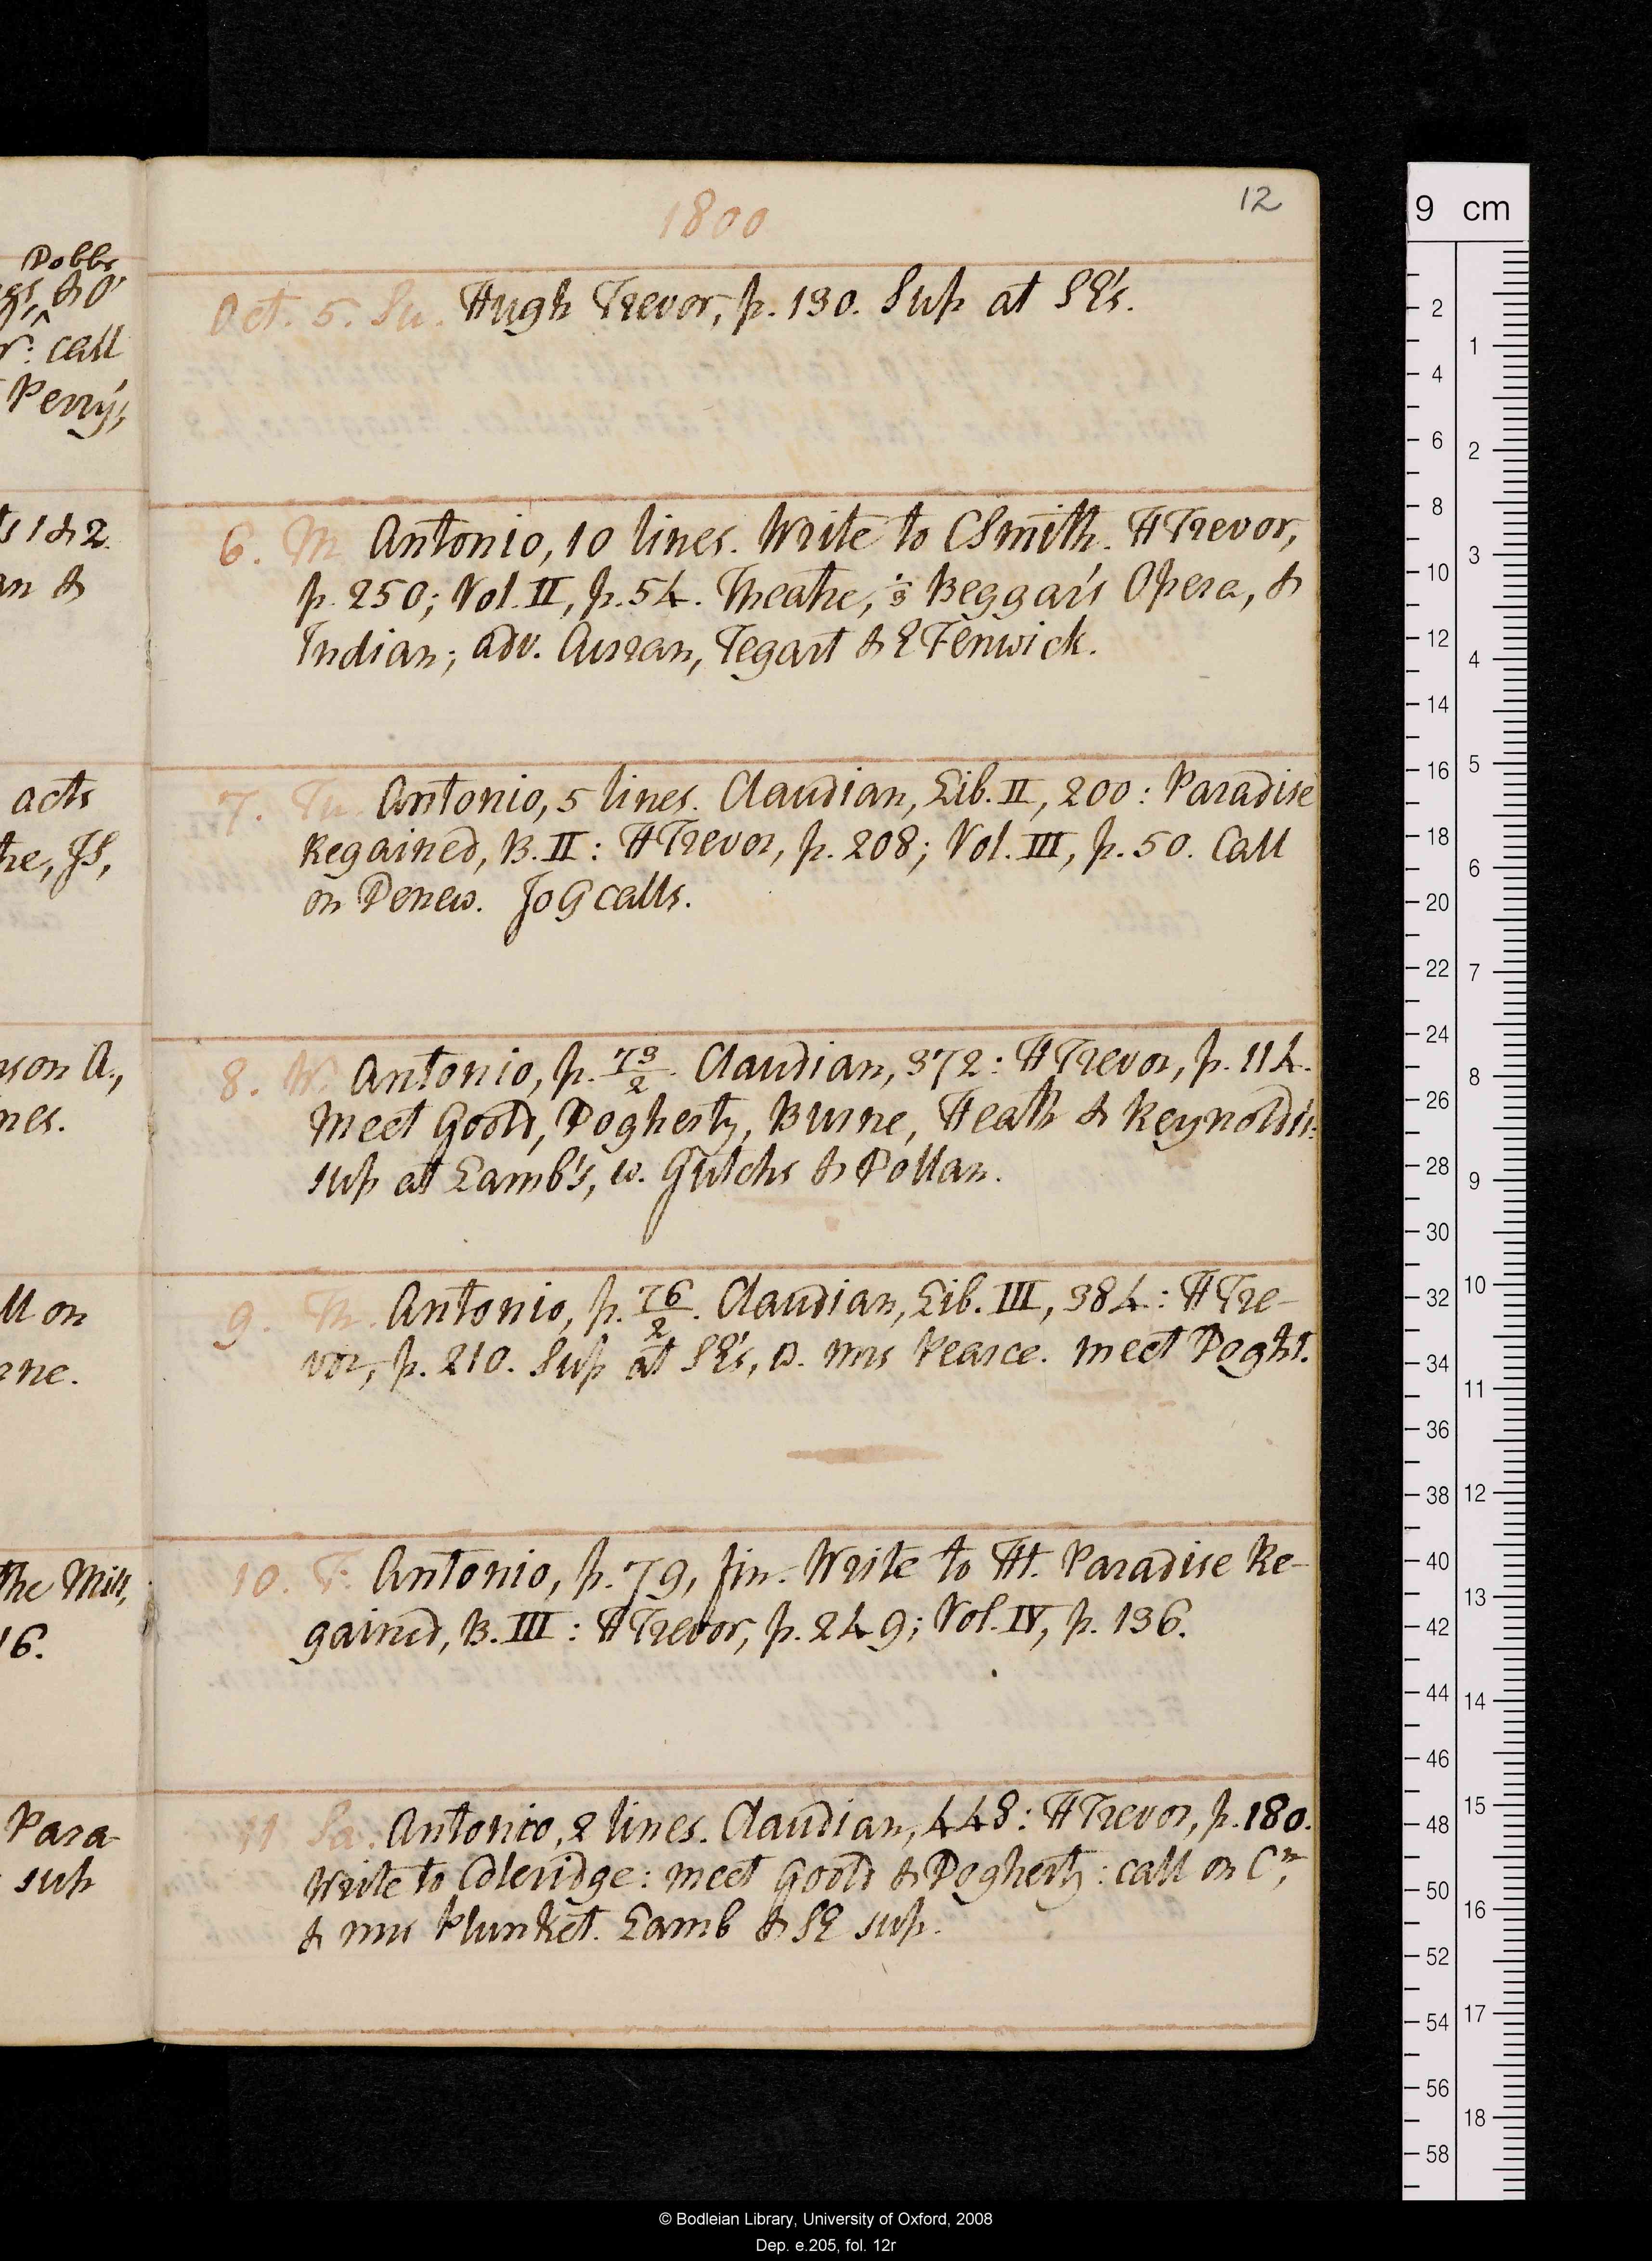 Dobbs
& O'
call
Perry's,
1 & 2.
an &
acts
JS,
nson A.,
nes.
ll on
rne.
the Mill,
16.
Para-
sup
12
1800
Oct. 5. Su. Hugh Trevor, p. 130. Sup at SE's.
6. M. Antonio, 10 lines. Write to CSmith. HTrevor,
p. 250; Vol. II, p. 54. Theatre, ⅓ Beggar's Opera, &
Indian; adv. Curran, Tegart & EFenwick.
7. Tu. Antonio, 5 lines. Claudian, Lib. II, 200: Paradise
Regained, B. II: HTrevor, p. 208; Vol. III, p. 50. Call
on Denew. JoG calls.
8. W. Antonio, p. 73/2. Claudian, 372: HTrevor, p. 114.
Meet Goold, Dogherty, Burne, Heath & Reynolds:
sup at Lamb's, w. Gutchs & Dollan.
9. Th. Antonio, p. 76/2. Claudian, Lib. III, 384: HTre-
vor, p. 210. Sup at SE's, w. Mrs Pearce. Meet Doght.
10. F. Antonio, p. 79, fin. Write to Ht. Paradise Re-
gained, B. III: HTrevor, p. 249; Vol. IV, p. 136.
11 Sa. Antonio, 2 lines. Claudian, 448: HTrevor, p. 180.
Write to Coleridge: meet Goold & Dogherty: call on Cn,
& Mrs Plunket. Lamb & SE sup.
9 cm
2
4
6
8
10
12
14
16
18
20
22
24
26
28
30
32
34
36
38
40
42
44
46
48
50
52
54
56
58
1
2
3
4
5
6
7
8
9
10
11
12
13
14
15
16
17
18
© Bodleian Library, University of Oxford, 2008
Dep. e.205, fol. 12r